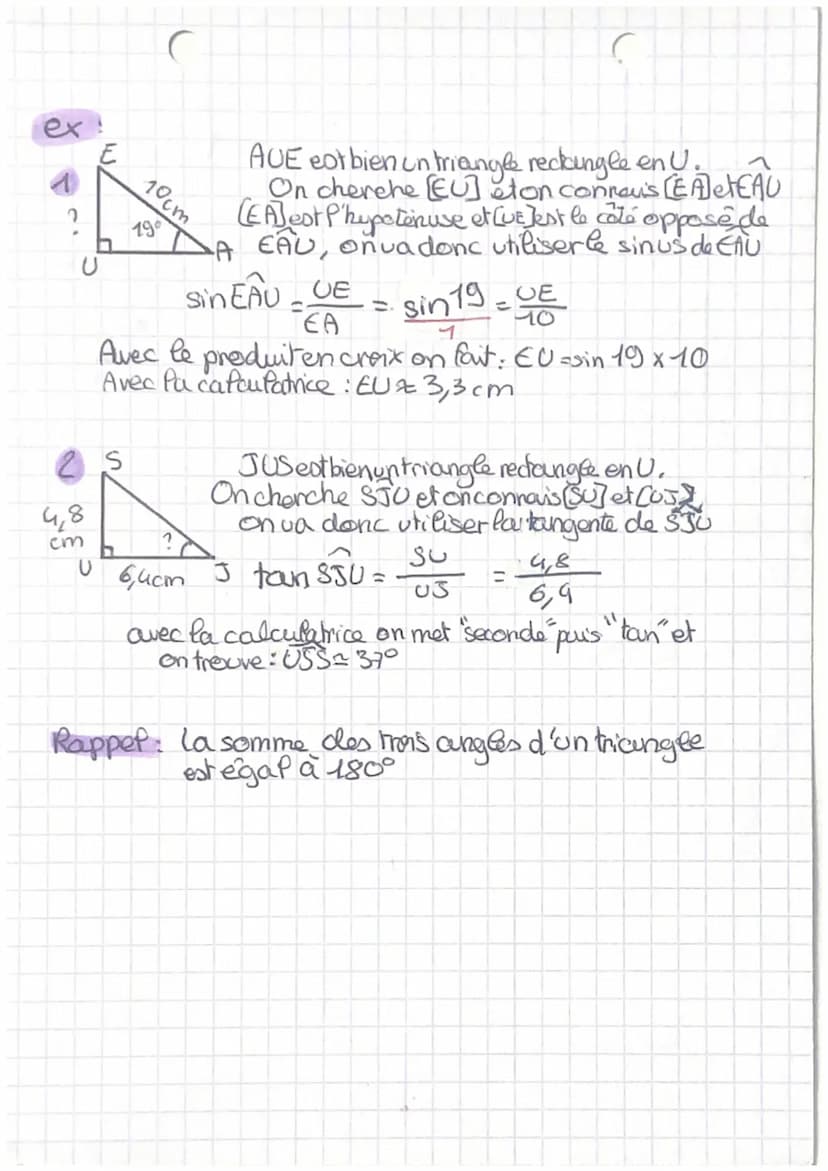 ex :
1
E
10cm
?
19°
U
A
AUE est bien un triangle rectangle en U.
On cherche [EU] et on connais [EA] et EÂU
[EA] est l'hypoténuse et [UE] est le côté opposé de
EÂU, on va donc utiliser le sinus de EÂU
sin EÂU = UE/EA = sin 19/1 = UE/10
Avec le produit en croix on fait : EU = sin 19 x 10
Avec la calculatrice : EU ≈ 3,3 cm
2
S
4,8
cm
?
U
6,4cm
J
JUS est bien un triangle rectangle en U.
On cherche SĴU et on connais [SU] et [UJ],
on va donc utiliser la tangente de SĴU
tan SĴU = SU/UJ = 4,8/6,4
avec la calculatrice on met "seconde" puis "tan" et
on trouve : UĴS ≃ 37°
Rappel : la somme des trois angles d'un triangle
est égal à 180°